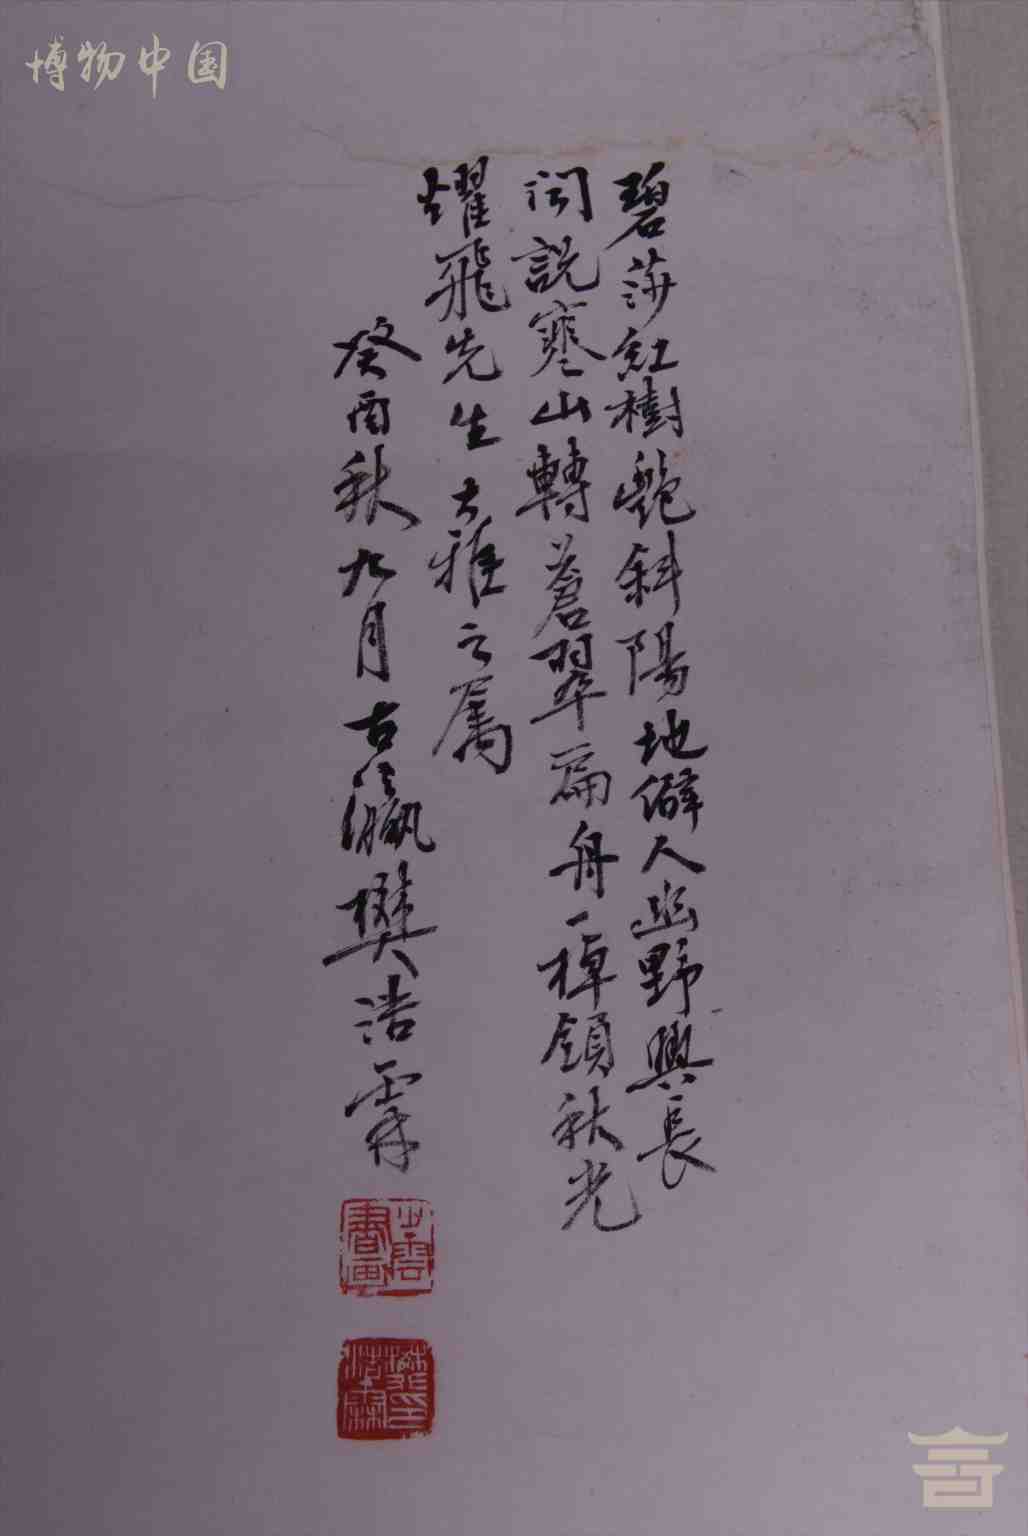 博物中国
碧莎红樹艶斜陽地僻人幽野興長
闻説寒山轉蒼翠扁舟一棹領秋光
耀飛先生大雅之属
癸酉秋九月古瀛樊浩霖
書画
樊印
浩霖